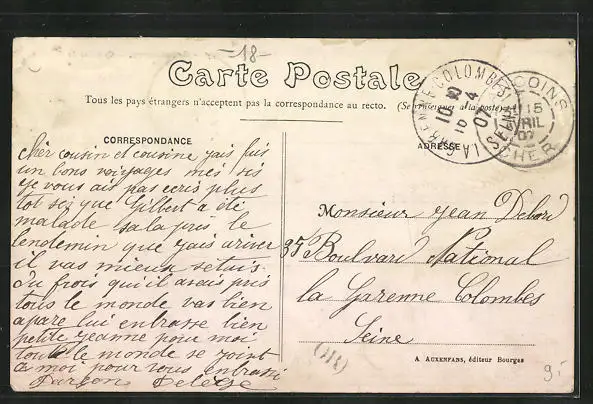 -18-
Carte Postale
Tous les pays étrangers n'acceptent pas la correspondance au recto. (Se renseigner à la poste)
CORRESPONDANCE
ADRESSE
LA GARENNE-COLOMBES SEINE
10 4 07
COINS CHER
15 AVRIL 07
cher cousin et cousine jais fais
un bons voiyages mes sis
je vous ais pas ecris plus
tot seq que Gilbert a été
malade sala pris le
lendemin que jais ariver
il vas mieux setais
du frois qu'il avais pris
tous le monde vas bien
apare lui enbrasse bien
petite jeanne pour moi
tout le monde se joint
a moi pour vous enbrassi
Monsieur Jean Debord
35 Boulvard National
la Garenne Colombes
Seine
(OR)
A AUXENFANS, éditeur Bourges
9.-